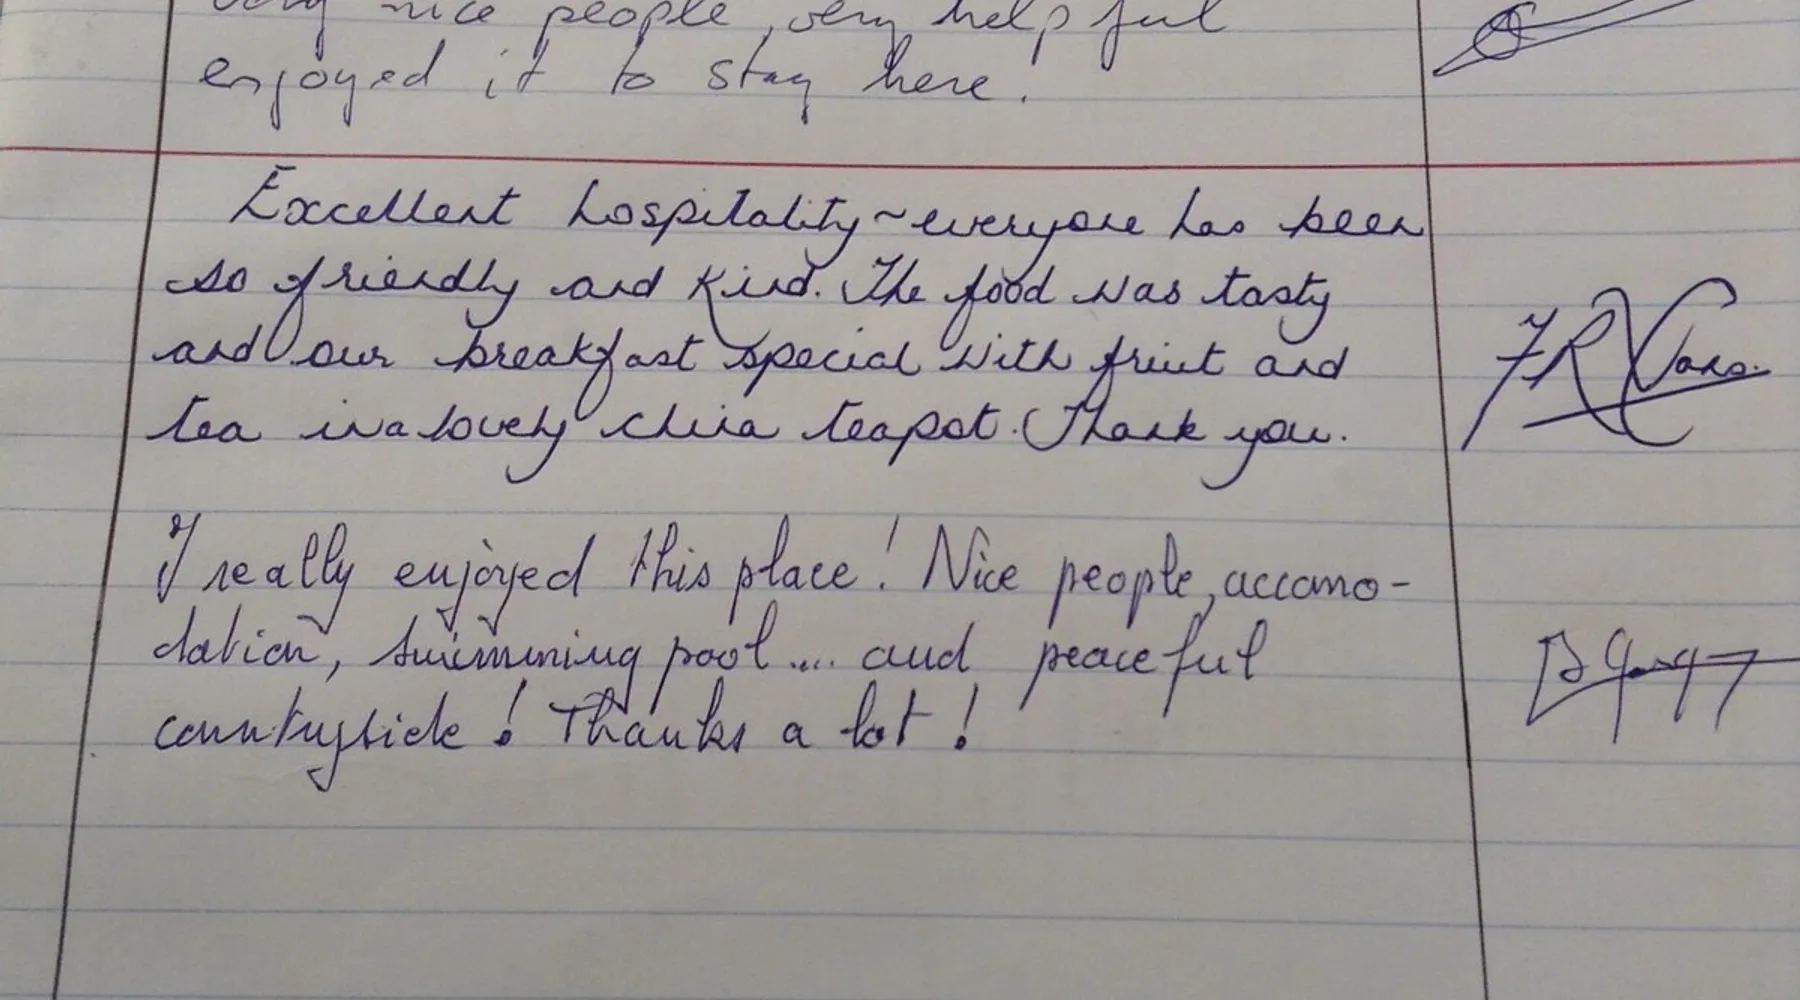 very nice people, very helpful
enjoyed it to stay here!
Excellent hospitality ~ everyone has been
so friendly and kind. The food was tasty
and our breakfast special with fruit and
tea in a lovely china teapot. Thank you.
I really enjoyed this place! Nice people, accomo-
dation, swimming pool .... and peaceful
countryside! Thanks a lot!